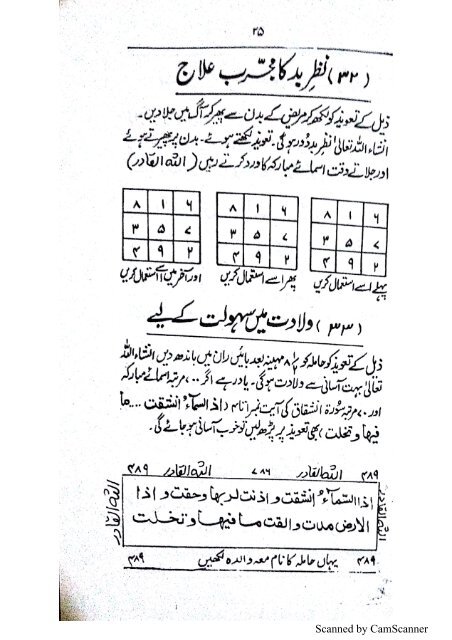 ۲۵
(۳۲) نظرِ بد کا مجرّب علاج
ذیل کے تعویذ کو لکھ کر مریض کے بدن سے پھیر کر آگ میں جلا دیں۔
انشاء اللہ تعالیٰ نظرِ بد دُور ہوگی۔ تعویذ لکھتے ہوئے۔ بدن پر پھیرتے ہوئے
اور جلاتے وقت اسمائے مبارکہ کا ورد کرتے رہیں (اللہ القادر)
۸ ۱ ۶ ۸ ۱ ۶ ۸ ۱ ۶
۳ ۵ ۷ ۳ ۵ ۷ ۳ ۵ ۷
۴ ۹ ۲ ۴ ۹ ۲ ۴ ۹ ۲
پہلے اسے استعمال کریں پھر اسے استعمال کریں اور آخر میں اسے استعمال کریں
(۳۳) ولادت میں سہولت کے لیے
ذیل کے تعویذ کو حاملہ کو مہینہ بعد بائیں ران میں باندھ دیں انشاء اللہ
تعالیٰ بہت آسانی سے ولادت ہوگی۔ یاد رہے اگر مرتبہ اسمائے مبارکہ
اور ۷۰ مرتبہ سورۃ انشقاق کی آیت نمبر ۱ تا ۴ (اذا السمآءُ انشقت ... ما
فیھا و تخلت) بھی تعویذ پر پڑھ لیں تو خوب آسانی ہو جائے گی۔
۴۸۹ اللہ القادر ۷۸۶ اللہ القادر ۴۸۹
اذا السمآءُ انشقت و اذنت لربھا وحقت و اذا
الارض مدت و القت ما فیھا و تخلت
اللہ القادر
اللہ القادر
۴۸۹ یہاں حاملہ کا نام معہ والدہ لکھیں ۴۸۹
Scanned by CamScanner